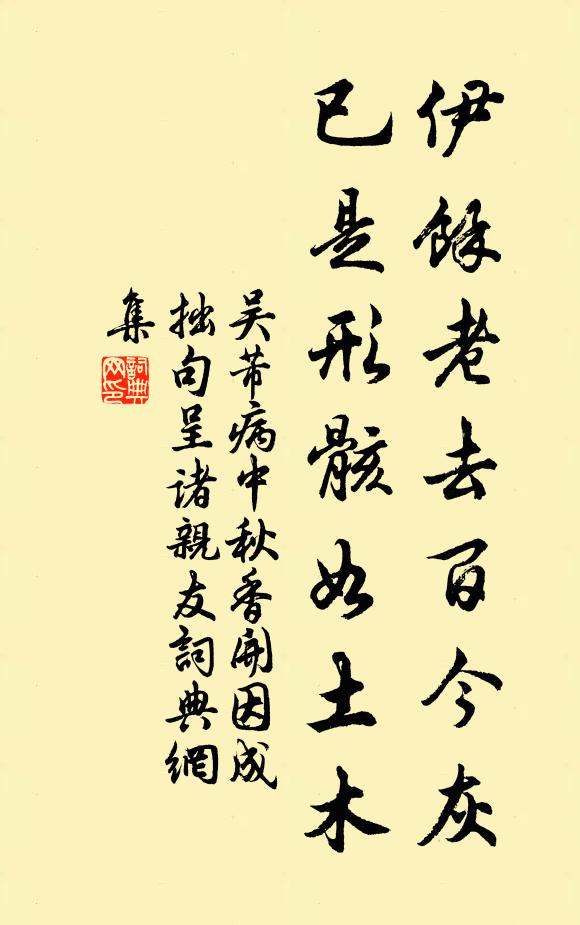 伊餘老去百今灰
已是形骸如土木
吴芾病中秋香開因成
拙句呈诸親友詞典網
集
詞典網印